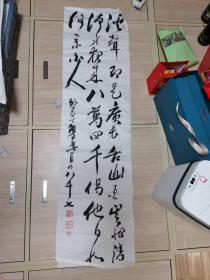 溪聲即是廣長舌山色豈非清
淨身夜來八萬四千偈他日如
何舉似人